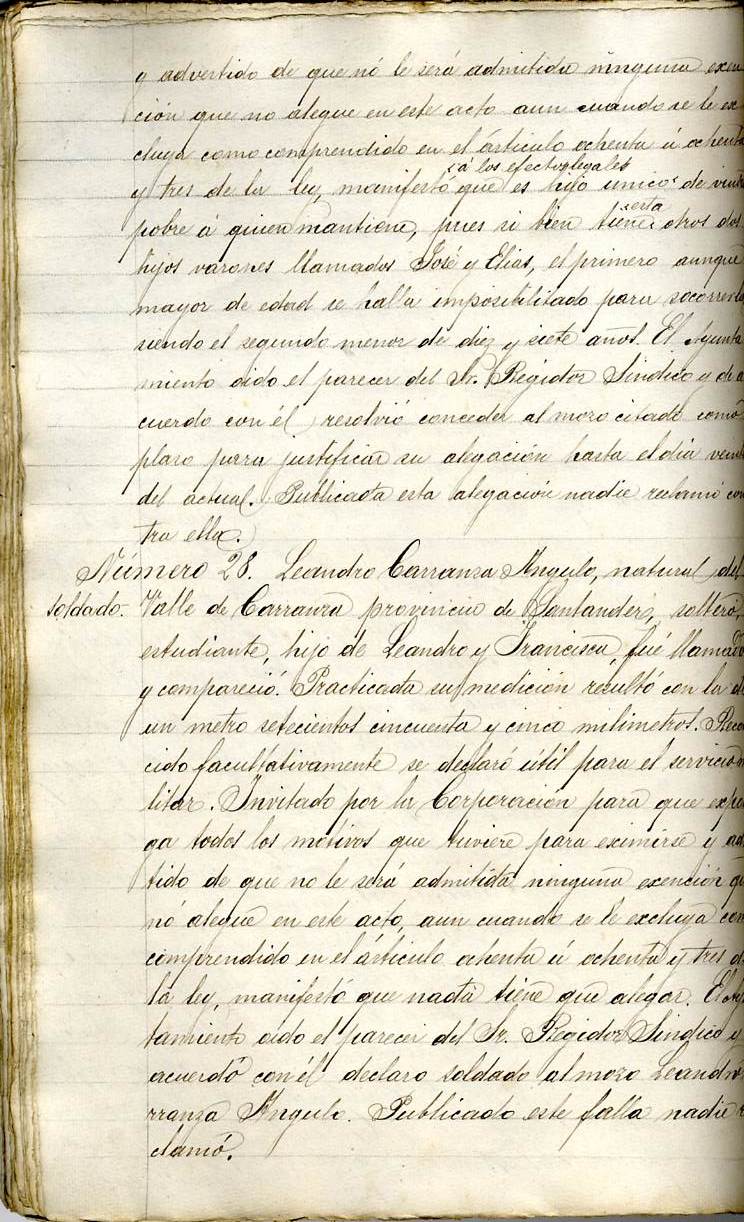 y advertido de que nó le será admitida ninguna exen
ción que no alegue en este acto aun cuando se le ex
cluya como comprendido en el artículo ochenta ú ochenta
á los efectos legales
y tres de la ley, manifestó que es hijo unico de viuda
esta
pobre á quien mantiene, pues si bien tiene otros dos
hijos varones llamados José y Elias, el primero aunque
mayor de edad se halla imposibilitado para socorrerla
siendo el segundo menor de diez y siete años. El Ayunta
miento oido el parecer del Sr. Regidor Sindico y de a
cuerdo con él, resolvió conceder al mozo citado como
plazo para justificar su alegación hasta el dia
del actual. Publicada esta alegación nadie reclamó con
tra ella.
Número 28. Leandro Carranza Angulo, natural del
soldado. Valle de Carranza provincia de Santander, soltero,
estudiante, hijo de Leandro y Francisca, fué llamado
y compareció. Practicada su medición resultó con la de
un metro setecientos cincuenta y cinco milimetros. Reco
cido facultativamente se declaró útil para el servicio m
litar. Invitado por la Corporación para que expon
ga todos los motivos que tuviere para eximirse y ad
tido de que no le será admitida ninguna exención qu
nó alegue en este acto, aun cuando se le excluya com
comprendido en el artículo ochenta ú ochenta y tres d
la ley, manifestó que nada tiene que alegar. El Ay
tamiento oido el parecer del Sr. Regidor Sindico y
acuerdo con él declaro soldado al mozo Leandro
rranza Angulo. Publicado este fallo nadie r
clamó.